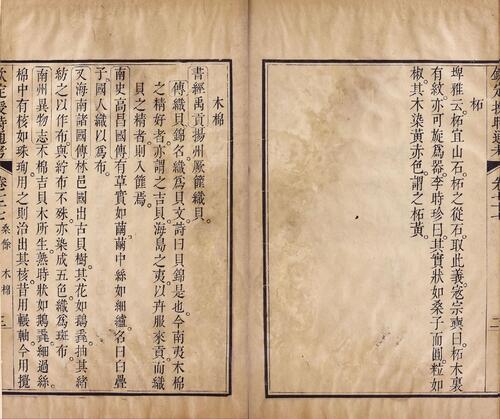 柘
埤雅云柘宜山石柘之從石取此義宼宗奭曰柘木裏
有紋亦可旋為器李時珍曰其實狀如桑子而圓粒如
椒其木染黃赤色謂之柘黃
木棉
書經禹貢揚州厥篚織貝
傳織貝錦名織為貝文詩曰貝錦是也今南夷木棉
之精好者亦謂之吉貝海島之夷以卉服來貢而織
貝之精者則入篚焉
南史高昌國傳有草實如繭繭中絲如細纑名曰白疊
子國人織以為布
又海南諸國傳林邑國出古貝樹其花如鵝毳抽其緒
紡之以作布與紵布不殊亦染成五色織為斑布
南州異物志木棉吉貝木所生熟時狀如鵝毳細過絲
棉中有核如珠珣用之則治出其核昔用輾軸今用攪
欽定授時通考 卷七十七 桑餘 木棉 三